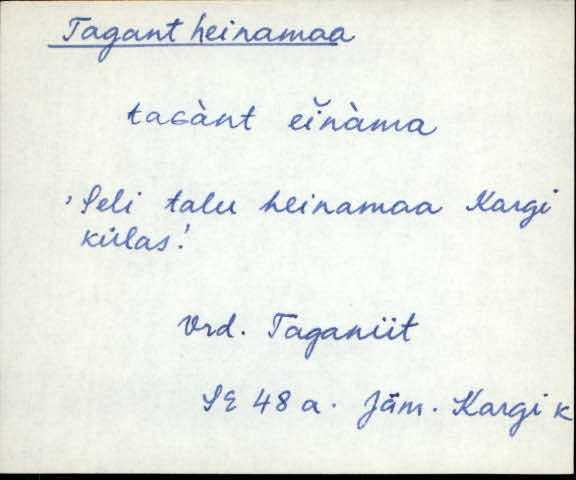 Tagant heinamaa
taɢànt eĭnàma
'Seli talu heinamaa Kargi
külas'.
Vrd. Taganiit
SE 48 a. Jäm. Kargi k